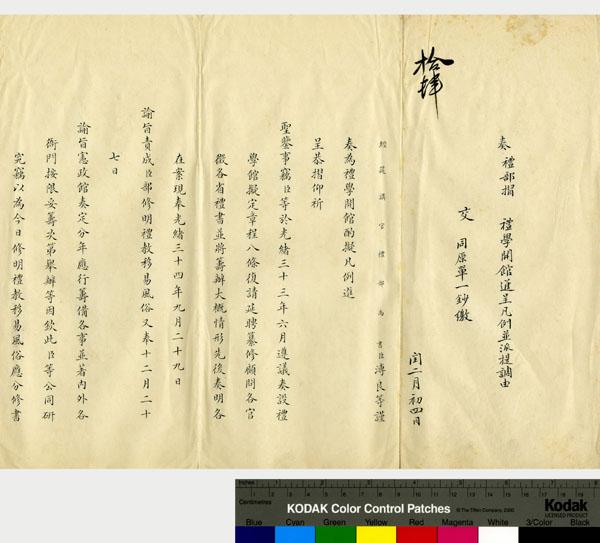 拾肆
奏 禮部摺 禮學開館進呈凡例並派提調由
交 同原單一鈔繳
閏二月初四日
經筵講官禮部尚書臣溥良等謹
奏為禮學開館酌擬凡例進
呈恭摺仰祈
聖鑒事竊臣等於光緒三十三年六月遵議奏設禮
學館擬定章程八條復請延聘纂修顧問各官
徵各省禮書並將籌辦大概情形先後奏明各
在案現奉光緒三十四年九月二十九日
諭旨責成臣部修明禮教移易風俗又奉十二月二十
七日
諭旨憲政館奏定分年應行籌備各事並著內外各
衙門按限妥籌次第舉辦等因欽此臣等公同研
究竊以為今日修明禮教移易風俗應分修書
Inches 1 2 3 4 5 6 7 8
Centimetres 1 2 3 4 5 6 7 8 9 10 11 12 13 14 15 16 17 18 19
KODAK Color Control Patches
© The Tiffen Company, 2000
Kodak
LICENSED PRODUCT
Blue Cyan Green Yellow Red Magenta White 3/Color Black